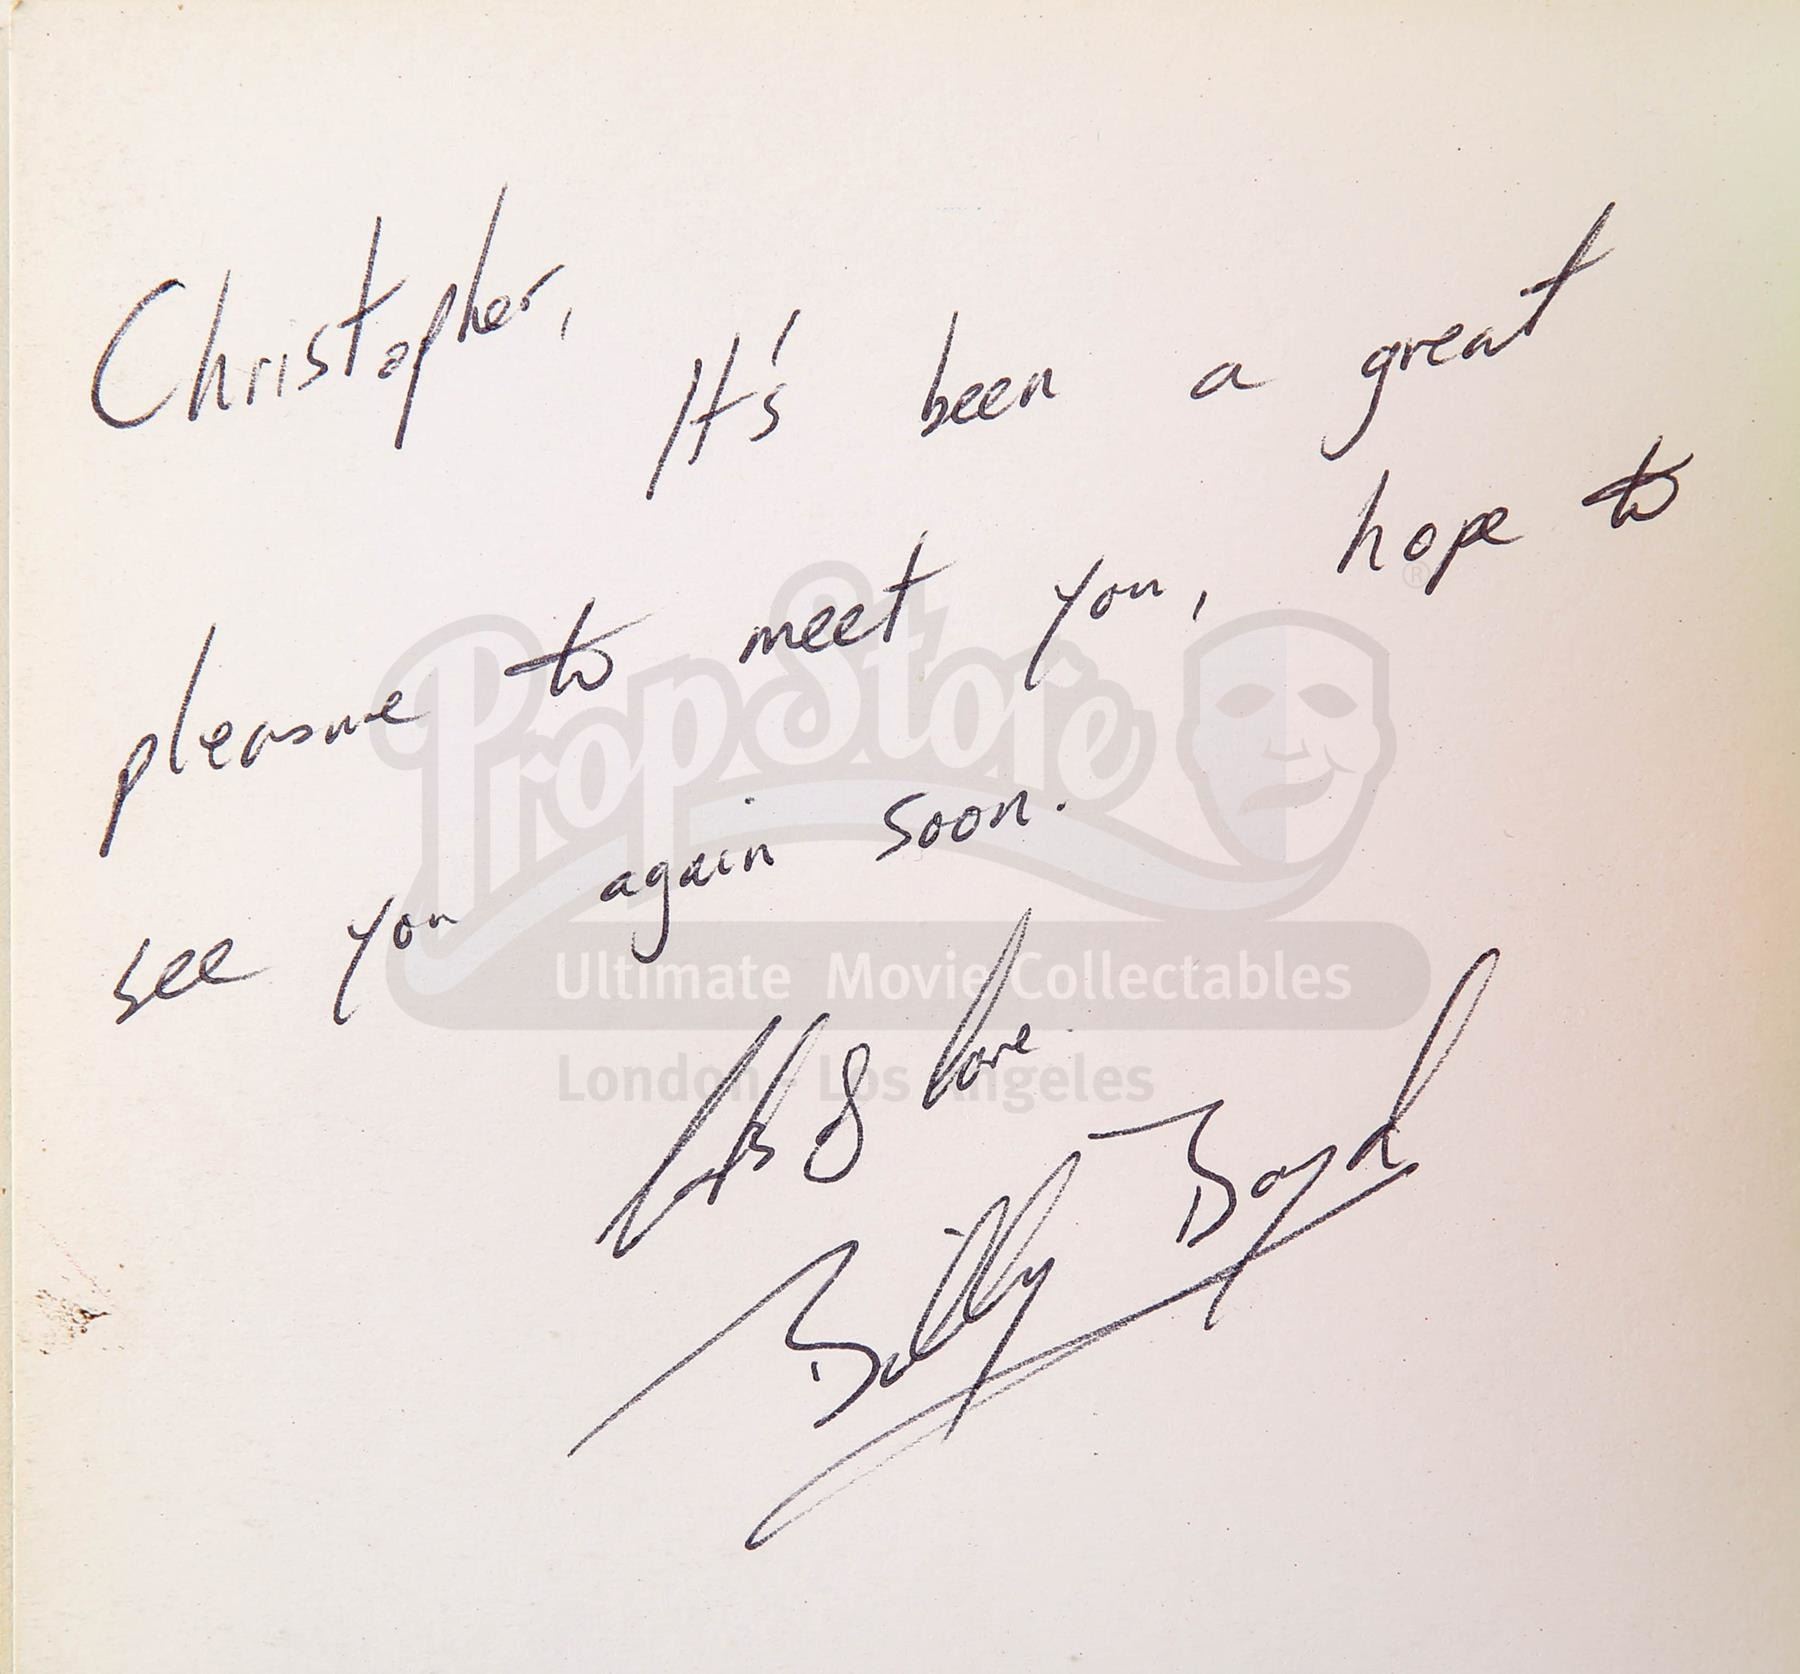 Christopher, It's been a great
pleasure to meet you, hope to
see you again soon.
& love
Billy Boyd
PropStore
®
Ultimate Movie Collectables
London Los Angeles